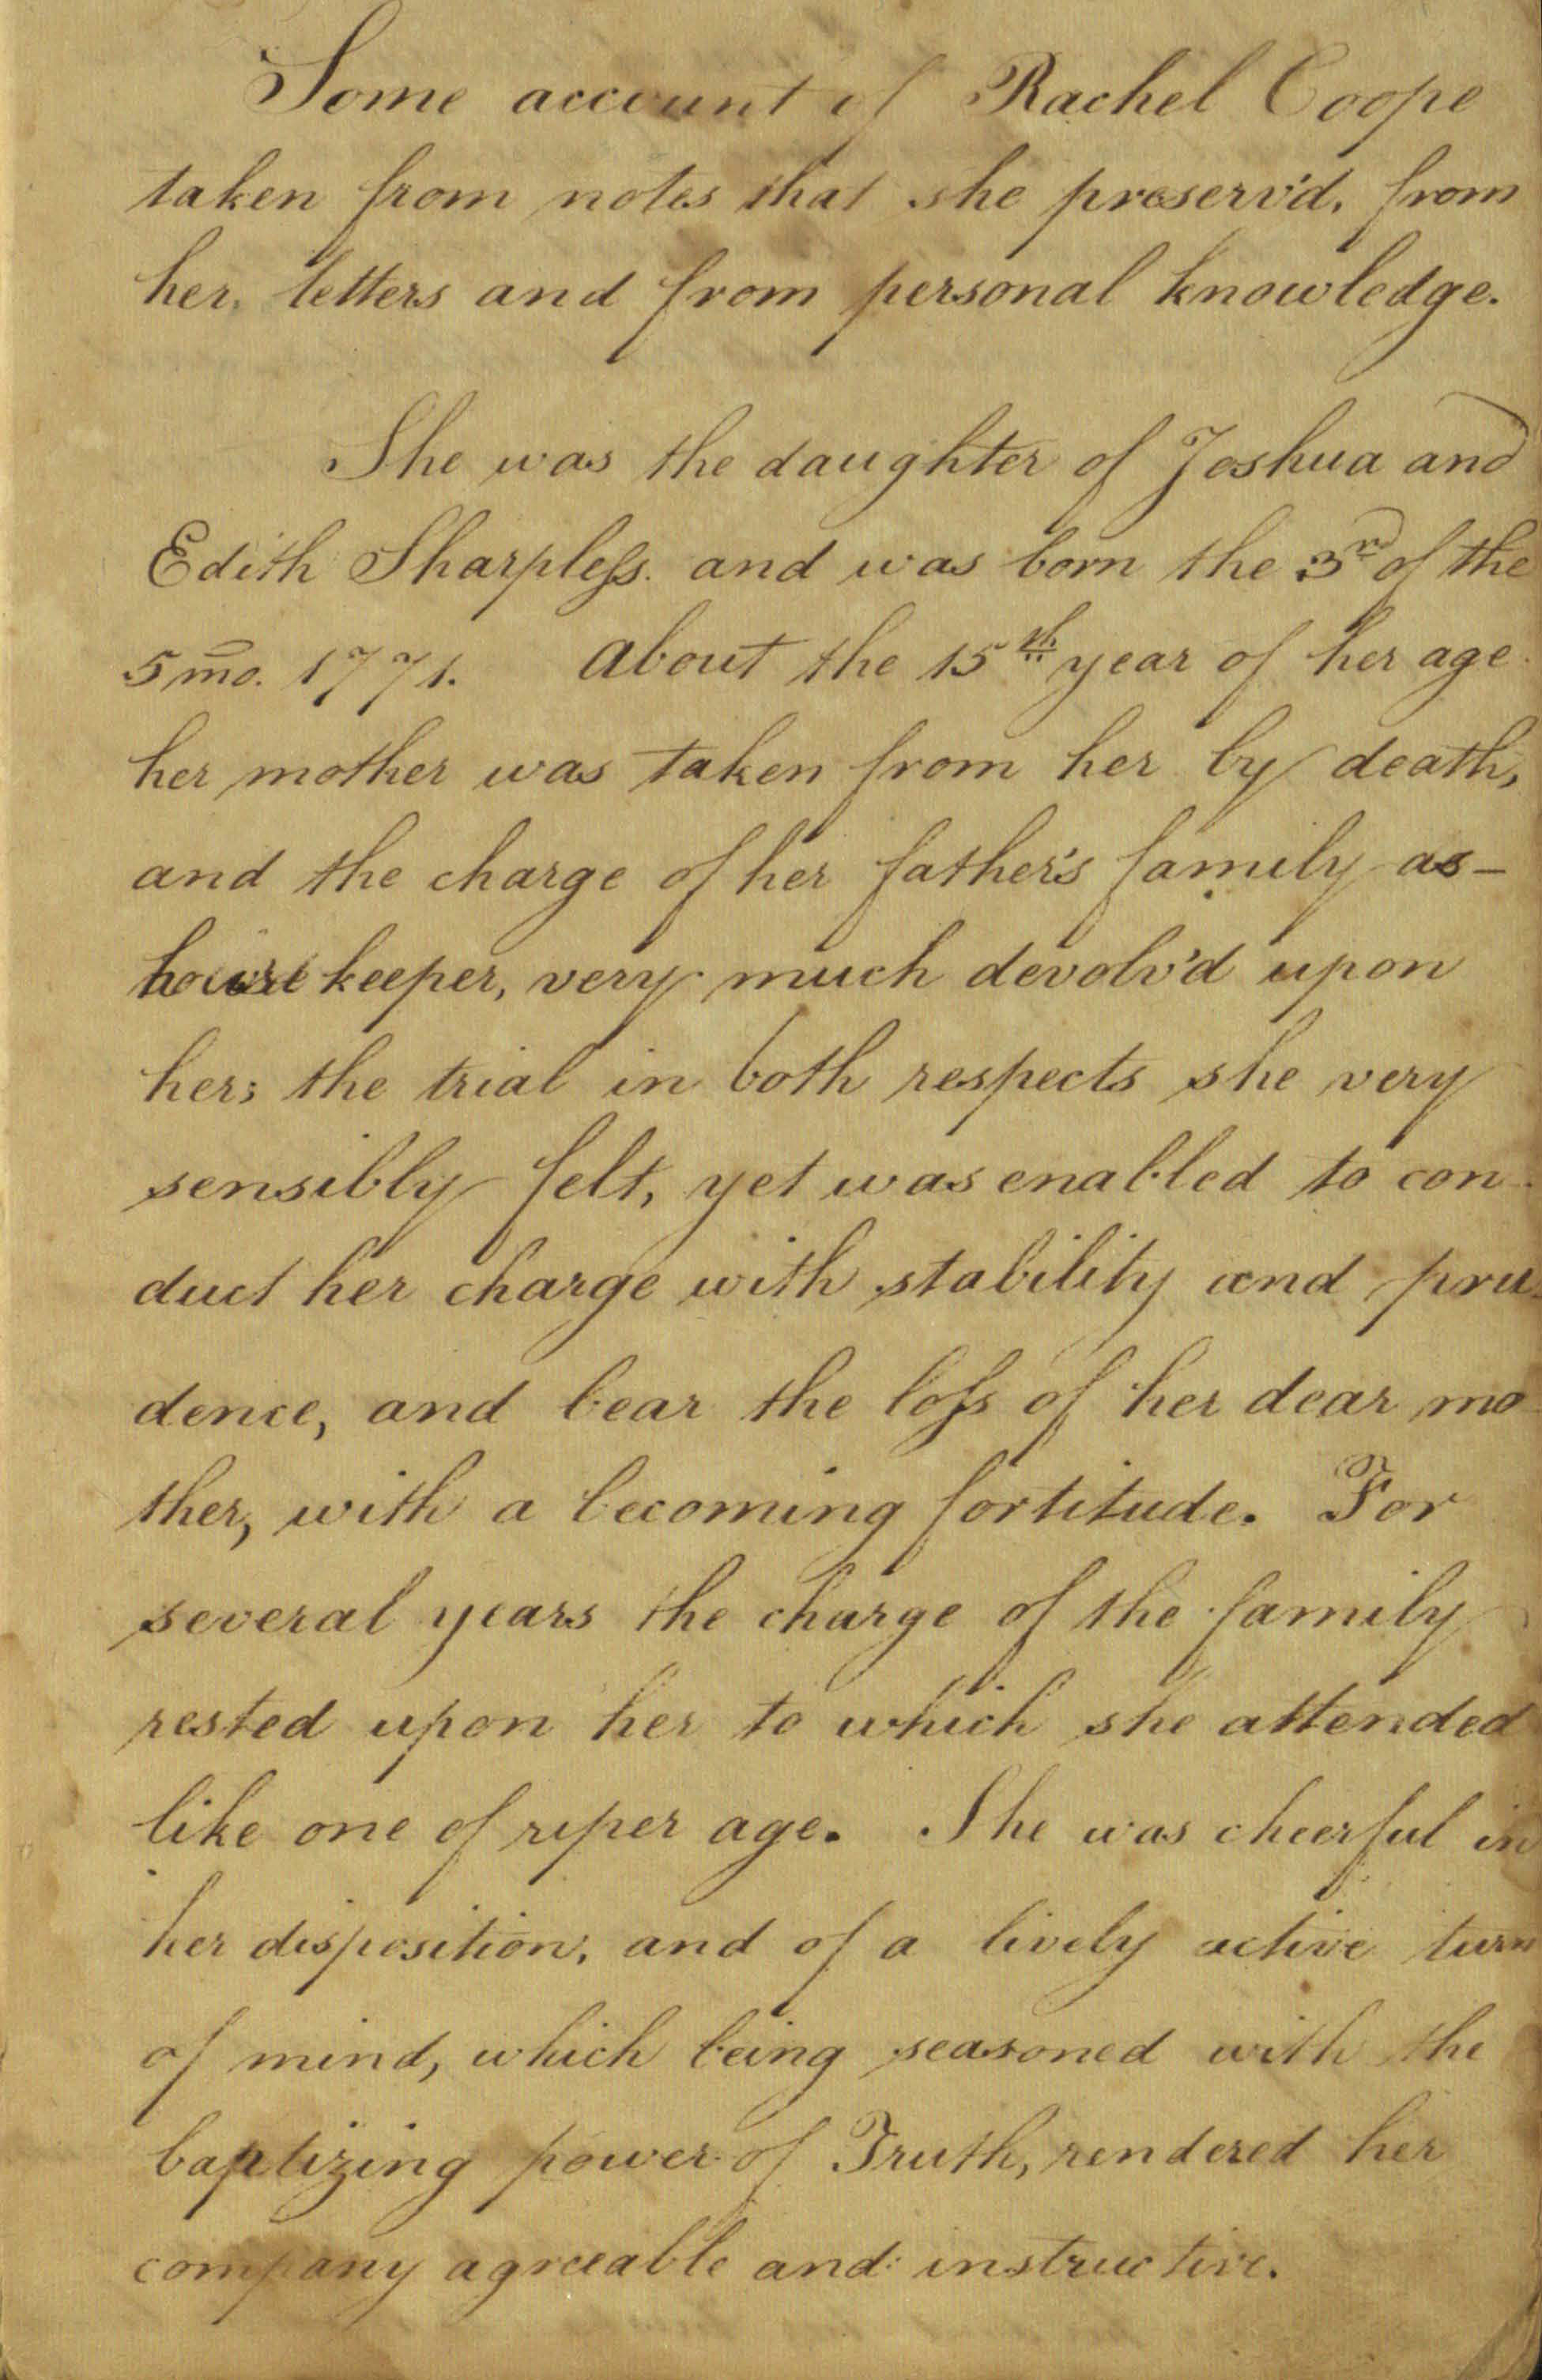 Some account of Rachel Coope
taken from notes that she preserv'd, from
her letters and from personal knowledge.
She was the daughter of Joshua and
Edith Sharpless. and was born the 3rd of the
5 mo. 1771. About the 15th year of her age
her mother was taken from her by death,
and the charge of her father's family as-
housekeeper, very much devolv'd upon
her; the trial in both respects she very
sensibly felt, yet was enabled to con-
duct her charge with stability and pru-
dence, and bear the loss of her dear mo-
ther, with a becoming fortitude. For
several years the charge of the family
rested upon her to which she attended
like one of riper age. She was cheerful in
her disposition, and of a lively active turn
of mind, which being seasoned with the
baptizing power of Truth, rendered her
company agreeable and instructive.